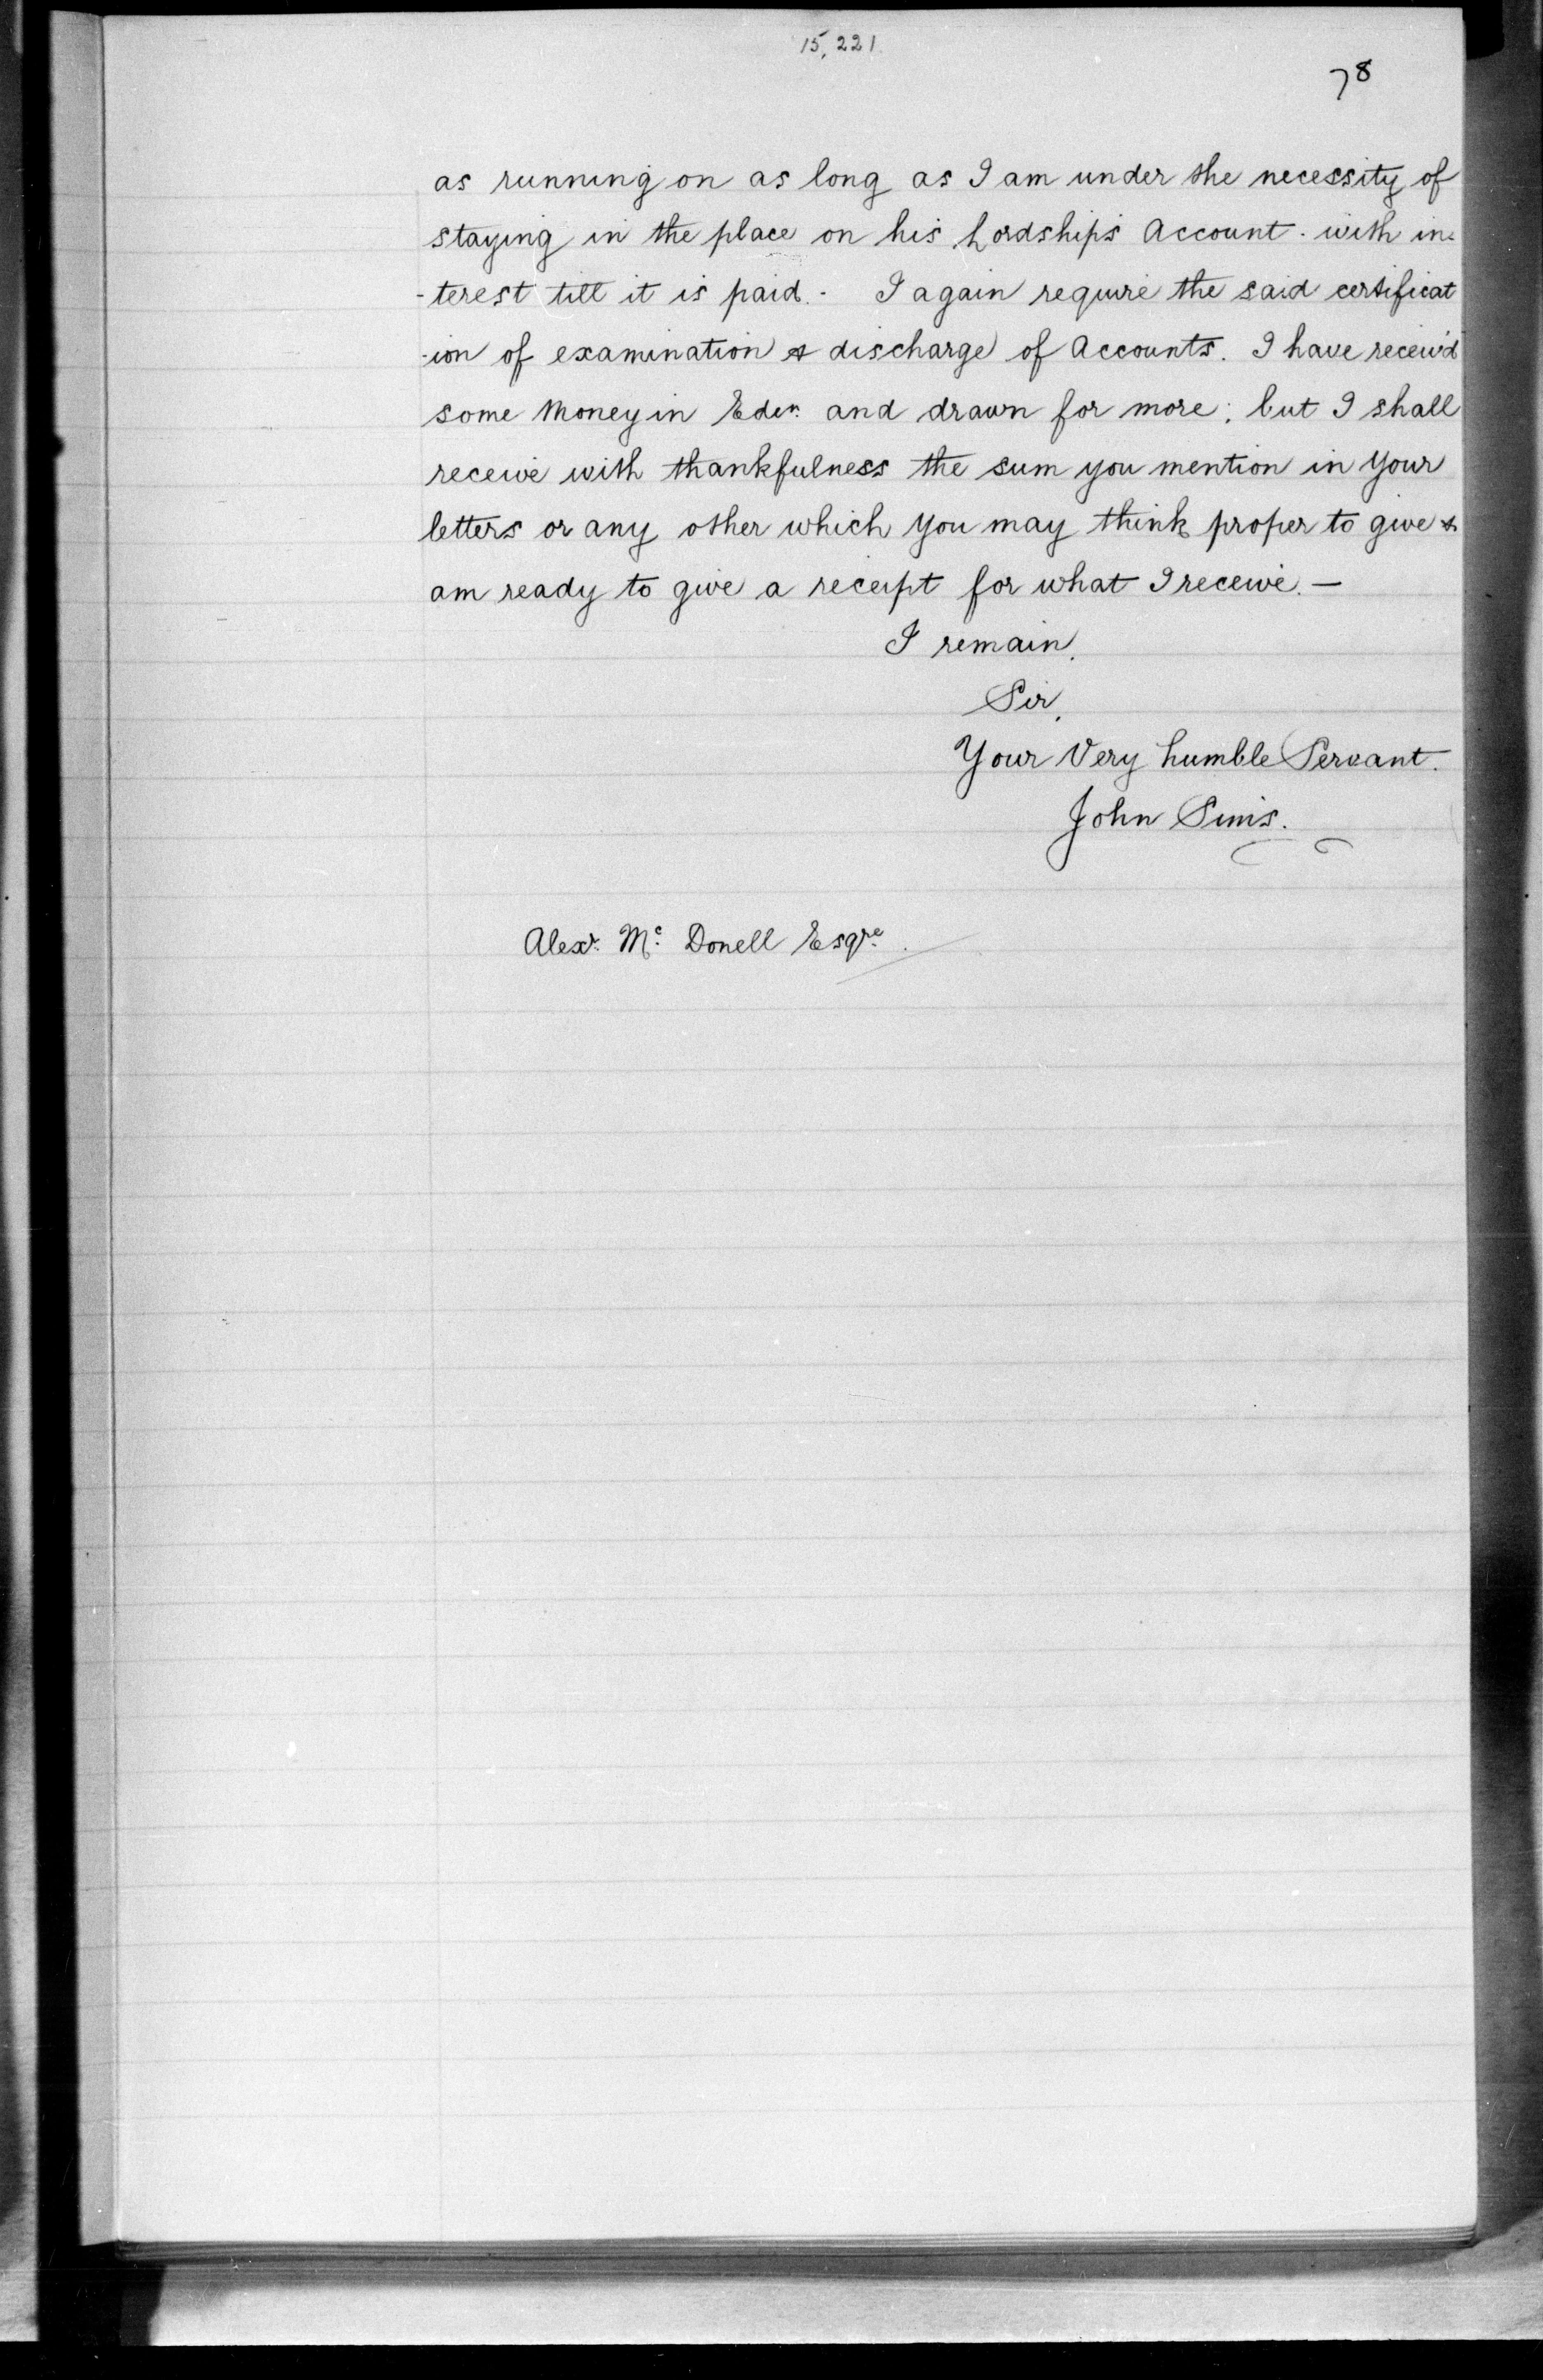 15,221
78
as running on as long as I am under the necessity of
staying in the place on his Lordship's Account. with in-
-terest till it is paid. - I again require the said certificat
-ion of examination & discharge of Accounts. I have receiv'd
some Money in Edin. and drawn for more; but I shall
receive with thankfulness the sum you mention in Your
letters or any other which you may think proper to give &
am ready to give a receipt for what I receive. —
I remain.
Sir,
Your Very humble Servant.
John Sims.
Alexr. Mc. Donell Esqre.